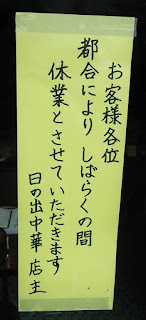 お客様各位
都合により しばらくの間
休業とさせていただきます
日の出中華 店主